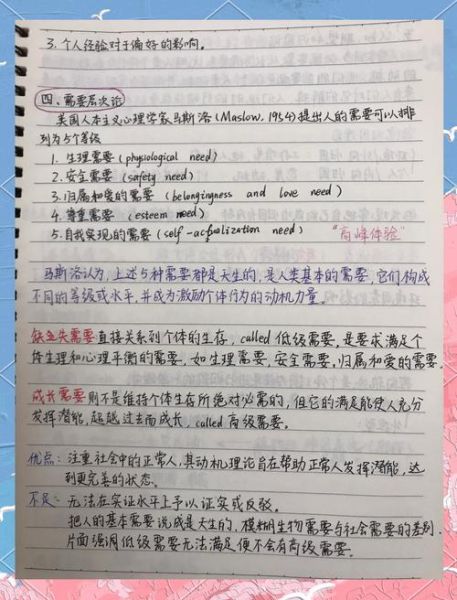 3. 个人经验对于偏好的影响。
四. 需要层次论
美国人本主义心理学家马斯洛(Maslow, 1954)提出人的需要可以排
列为5个等级
1. 生理需要 (physiological need)
2. 安全需要 (safety need)
3. 归属和爱的需要 (belongingness and love need)
4. 尊重需要 (esteem need)
5. 自我实现的需要 (self-actualization need) "高峰体验"
马斯洛认为,上述5种需要都是天生的,是人类基本的需要,它们构成
不同的等级或水平,并成为激励个体行为的动机力量。
缺失需要直接关系到个体的生存, called 低级需要,是要求满足个
体生理和心理平衡的需要,如生理需要,安全需要,归属和爱的需要.
成长需要则不是维持个体生存所绝对必需的,但它的满足能使人充分
发挥潜能,超越过去而成长, called 高级需要。
优点: 注重社会中的正常人,其动机理论旨在帮助正常人发挥潜能,达
到更完善的状态。
不足: 无法在实证水平上予以证实或反驳。
把人的基本需要说成是天生的,模糊生物需要与社会需要的差别.
片面强调低级需要无法满足便不会有高级需要。